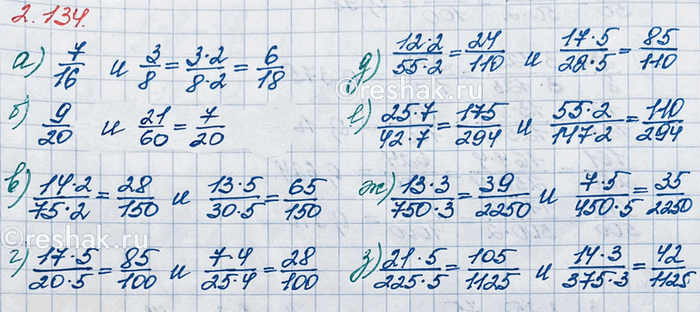 2.134.
а) 7/16 и 3/8 = 3·2/8·2 = 6/18
б) 9/20 и 21/60 = 7/20
в) 14·2/75·2 = 28/150 и 13·5/30·5 = 65/150
г) 17·5/20·5 = 85/100 и 7·4/25·4 = 28/100
д) 12·2/55·2 = 24/110 и 17·5/22·5 = 85/110
е) 25·7/42·7 = 175/294 и 55·2/147·2 = 110/294
ж) 13·3/750·3 = 39/2250 и 7·5/450·5 = 35/2250
з) 21·5/225·5 = 105/1125 и 14·3/375·3 = 42/1125
©reshak.ru